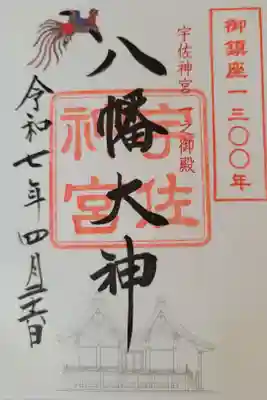 御鎮座一三〇〇年
宇佐神宮 一之御殿
八幡大神
宇佐神宮
令和七年四月 日